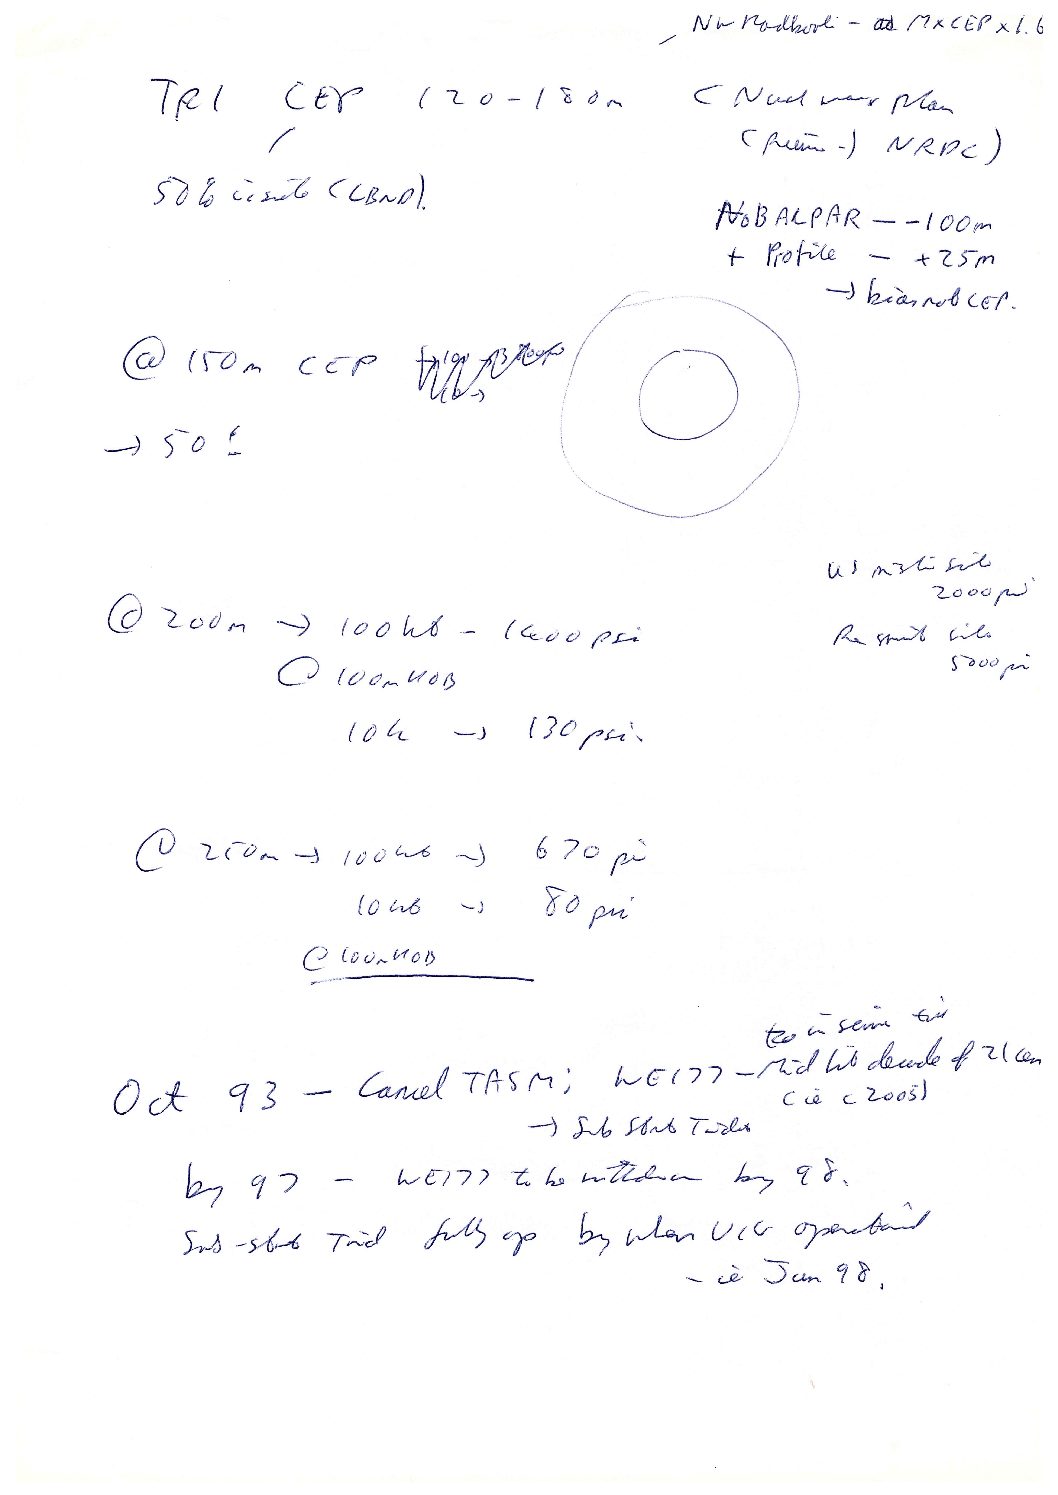 Nw Handbook - M x CEP x 1.6
TRI CEP 120-180m (Nucl war plan
NRDC)
50% inside (CBND).
NoBALPAR - -100m
+ Profile - +25m
→ bias not CEP.
@ 150m CEP
→ 50%
US silo
2000 psi
@ 200m → 100kt - 1400 psi
silo
5000 psi
@ 100m HOB
10k → 130 psi.
@ 250m → 100kt → 670 psi
10kt → 80 psi
@ 100m HOB
to in service till
Oct 93 - Cancel TASM; WE177 - Mid 1st decade of 21 cen
(ie c 2005)
→ Sub Strat Trident
by 97 - WE177 to be withdrawn by 98.
Sub-strat Trid fully op by when VIG operational
- ie Jan 98.